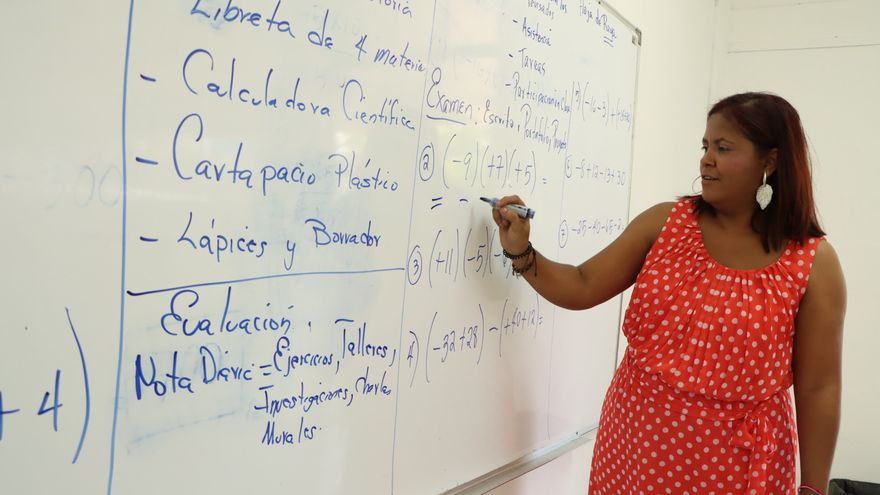 + 4)
Libreta de 4 materia
- Calculadora Científica
- Cartapacio Plástico
- Lápices y Borrador
Evaluación.
Nota Diaria = Ejercicios, Talleres,
Investigaciones, Charlas
Murales.
- Asistencia
- Tareas
- Participación en Clase
Examen: Escrito, Portafolio,
② (-9)(+7)(+5) =
= -
③ (+11)(-5)
4) (-32+28) - (+40+12) =
⑥ -8+12-13+30
Hoja de Raya